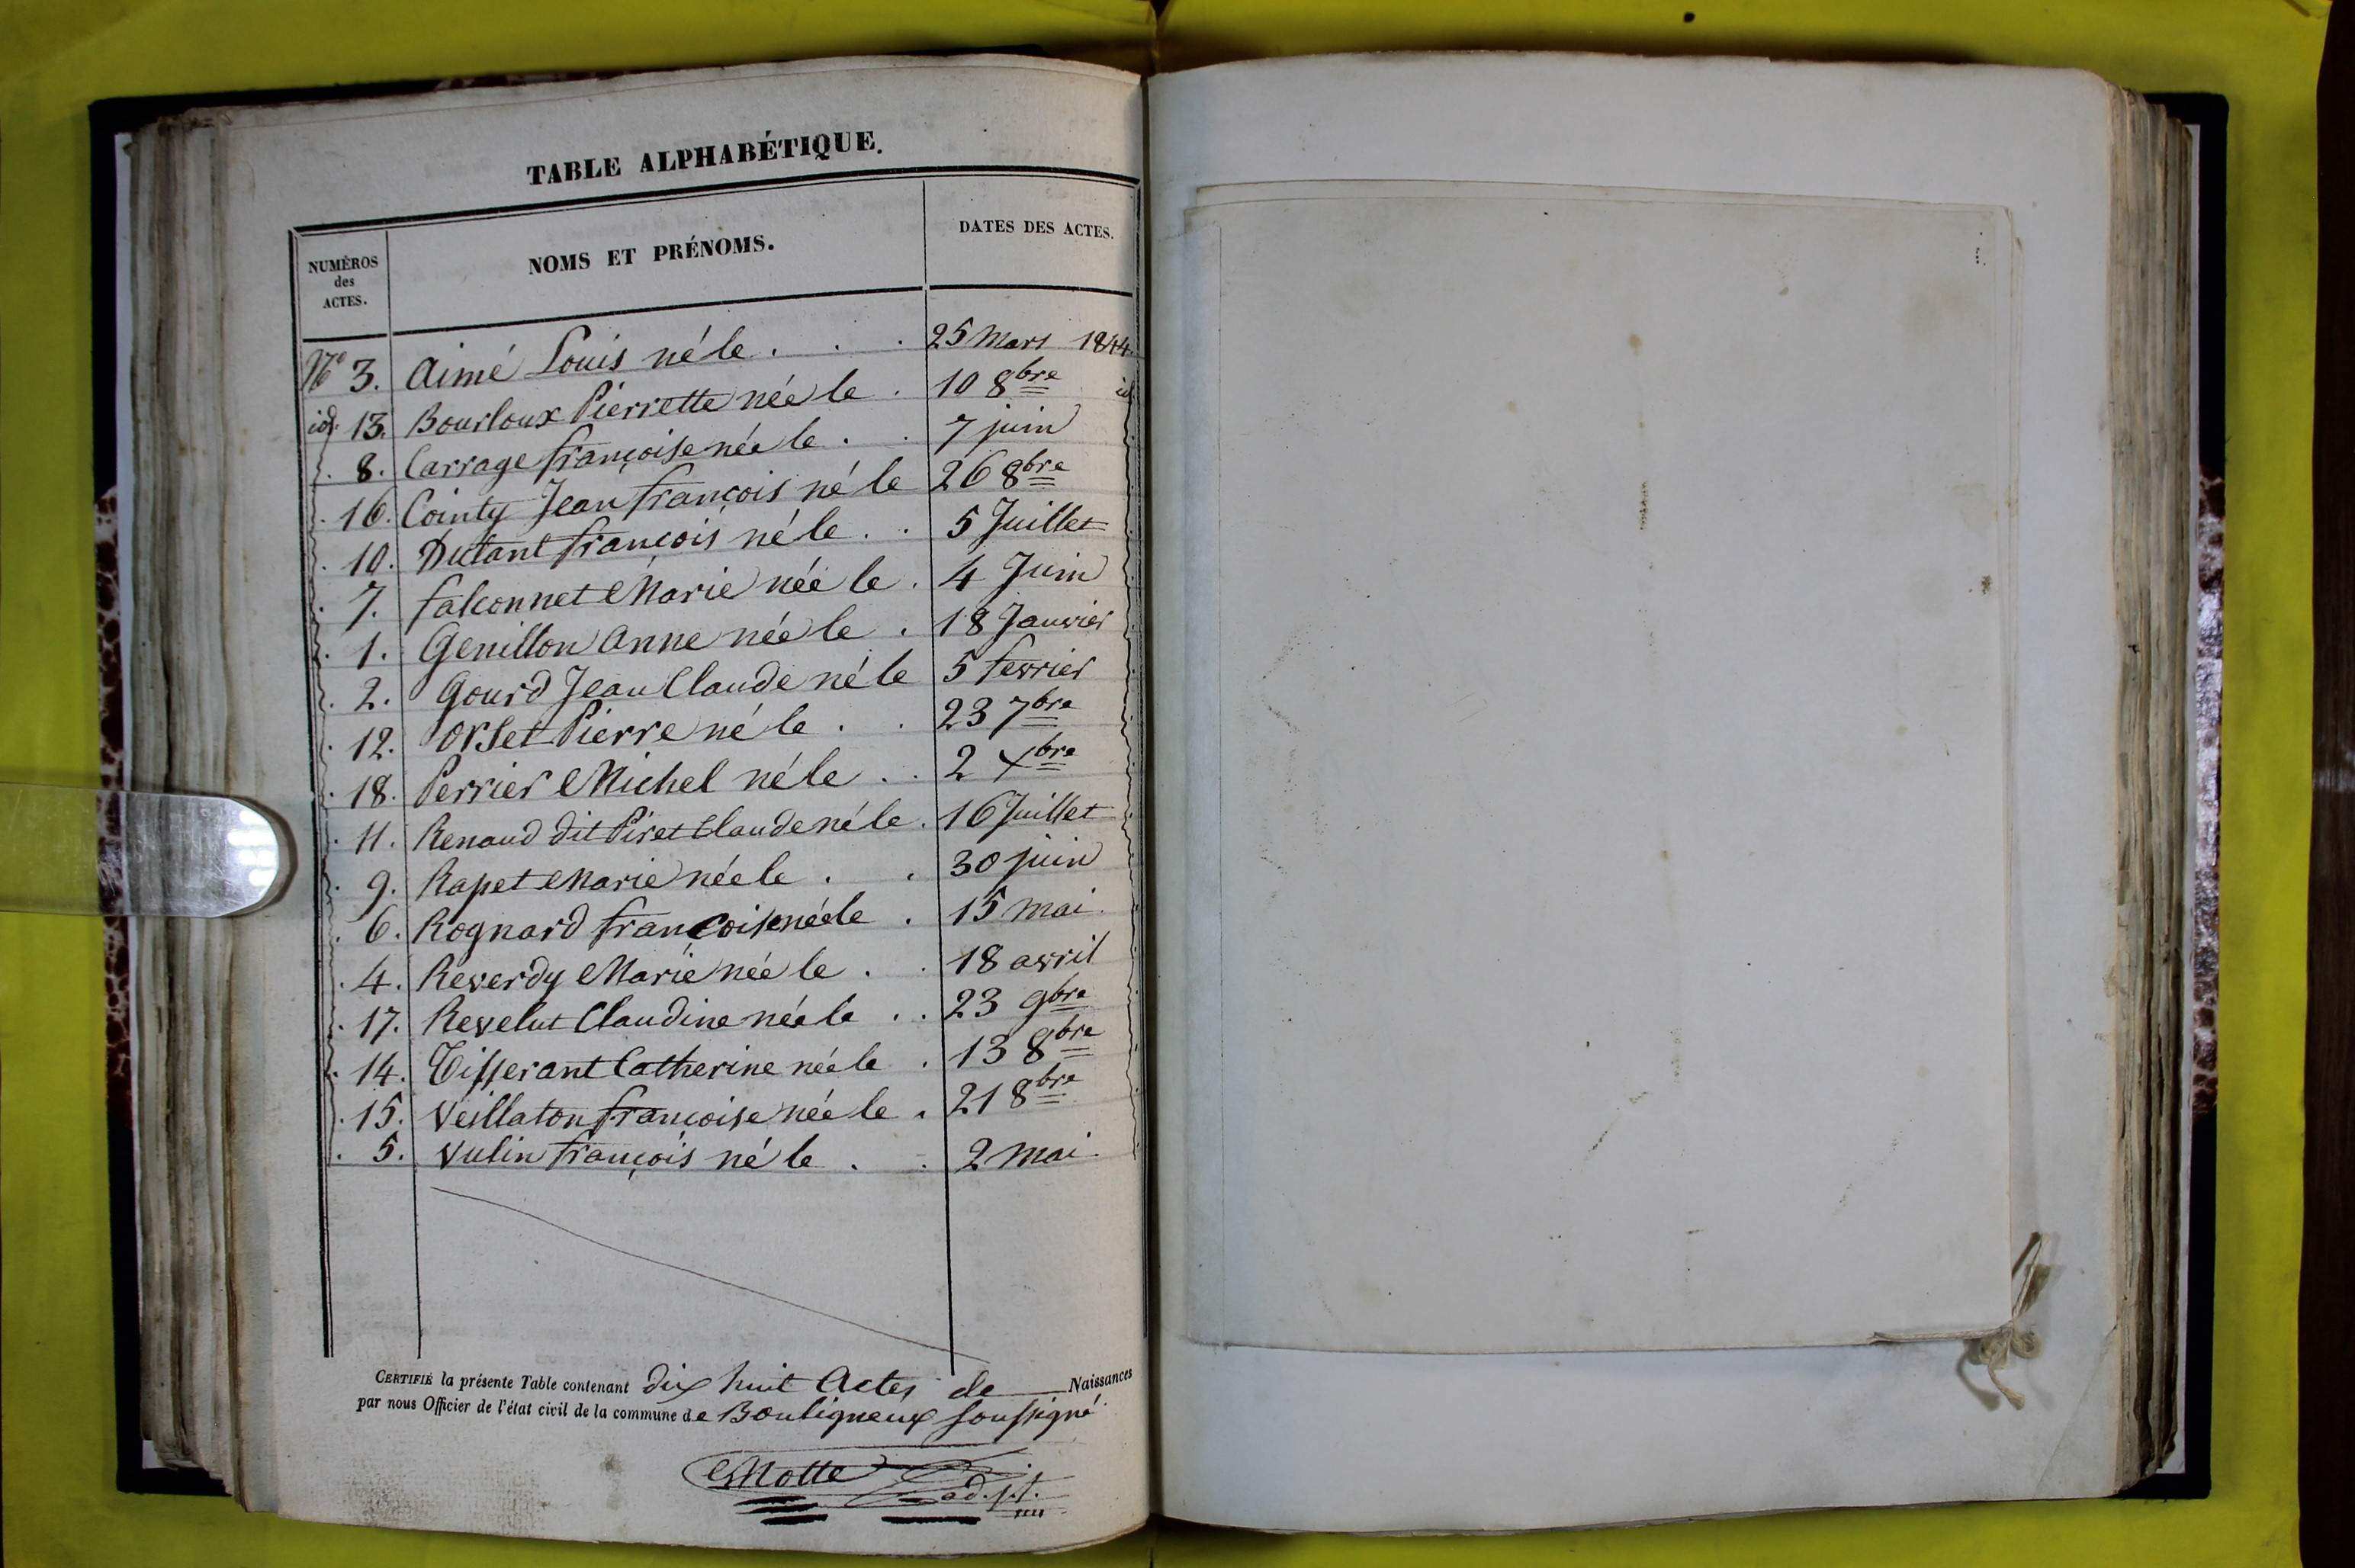 TABLE ALPHABÉTIQUE.
NUMÉROS des ACTES. NOMS ET PRÉNOMS. DATES DES ACTES.
N° 3. Aimé Louis né le . . . 25 Mars 1844.
id. 13. Bourloux Pierrette née le . 10 8bre id
8. Carrage françoise née le . . 7 juin
16. Cointy Jean françois né le 26 8bre
10. Dutant françois né le . . 5 Juillet
7. falconnet Marie née le . 4 Juin
1. Genillon Anne née le . 18 Janvier
2. Gourd Jean Claude né le 5 fevrier
12. Orset Pierre né le . . 23 7bre
18. Perrier Michel né le . . 2 Xbre
11. Renaud dit Piret Claude né le . 16 Juillet
9. Rapet Marie née le . . 30 juin
6. Rognard françoise née le . 15 mai.
4. Reverdy Marie née le . . 18 avril
17. Revelut Claudine née le . . 23 9bre
14. Tisserant Catherine née le . 13 8bre
15. Veillaton françoise née le . 21 8bre
5. Vulin françois né le . . 2 mai.
CERTIFIÉ la présente Table contenant dix huit Actes de Naissances
par nous Officier de l'état civil de la commune de Bouligneux soussigné
Motte
ad.jt.